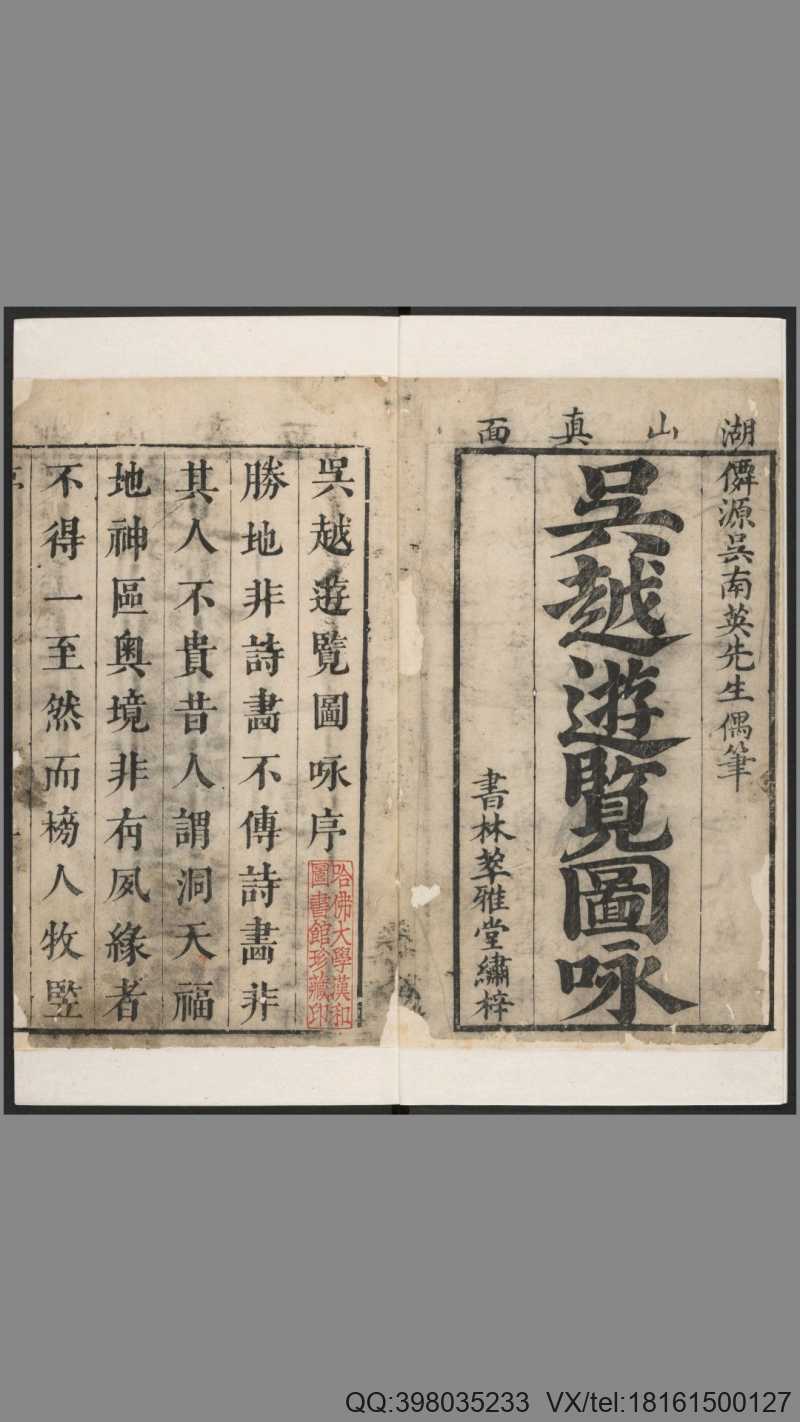 湖山真面
僊源吳南英先生偶筆
吳越遊覽圖咏
書林萃雅堂繡梓
吳越遊覽圖咏序
哈佛大學漢和
圖書館珍藏印
勝地非詩畵不傳詩畵非
其人不貴昔人謂洞天福
地神區奧境非有夙緣者
不得一至然而榜人牧竪
QQ:398035233 VX/tel:18161500127